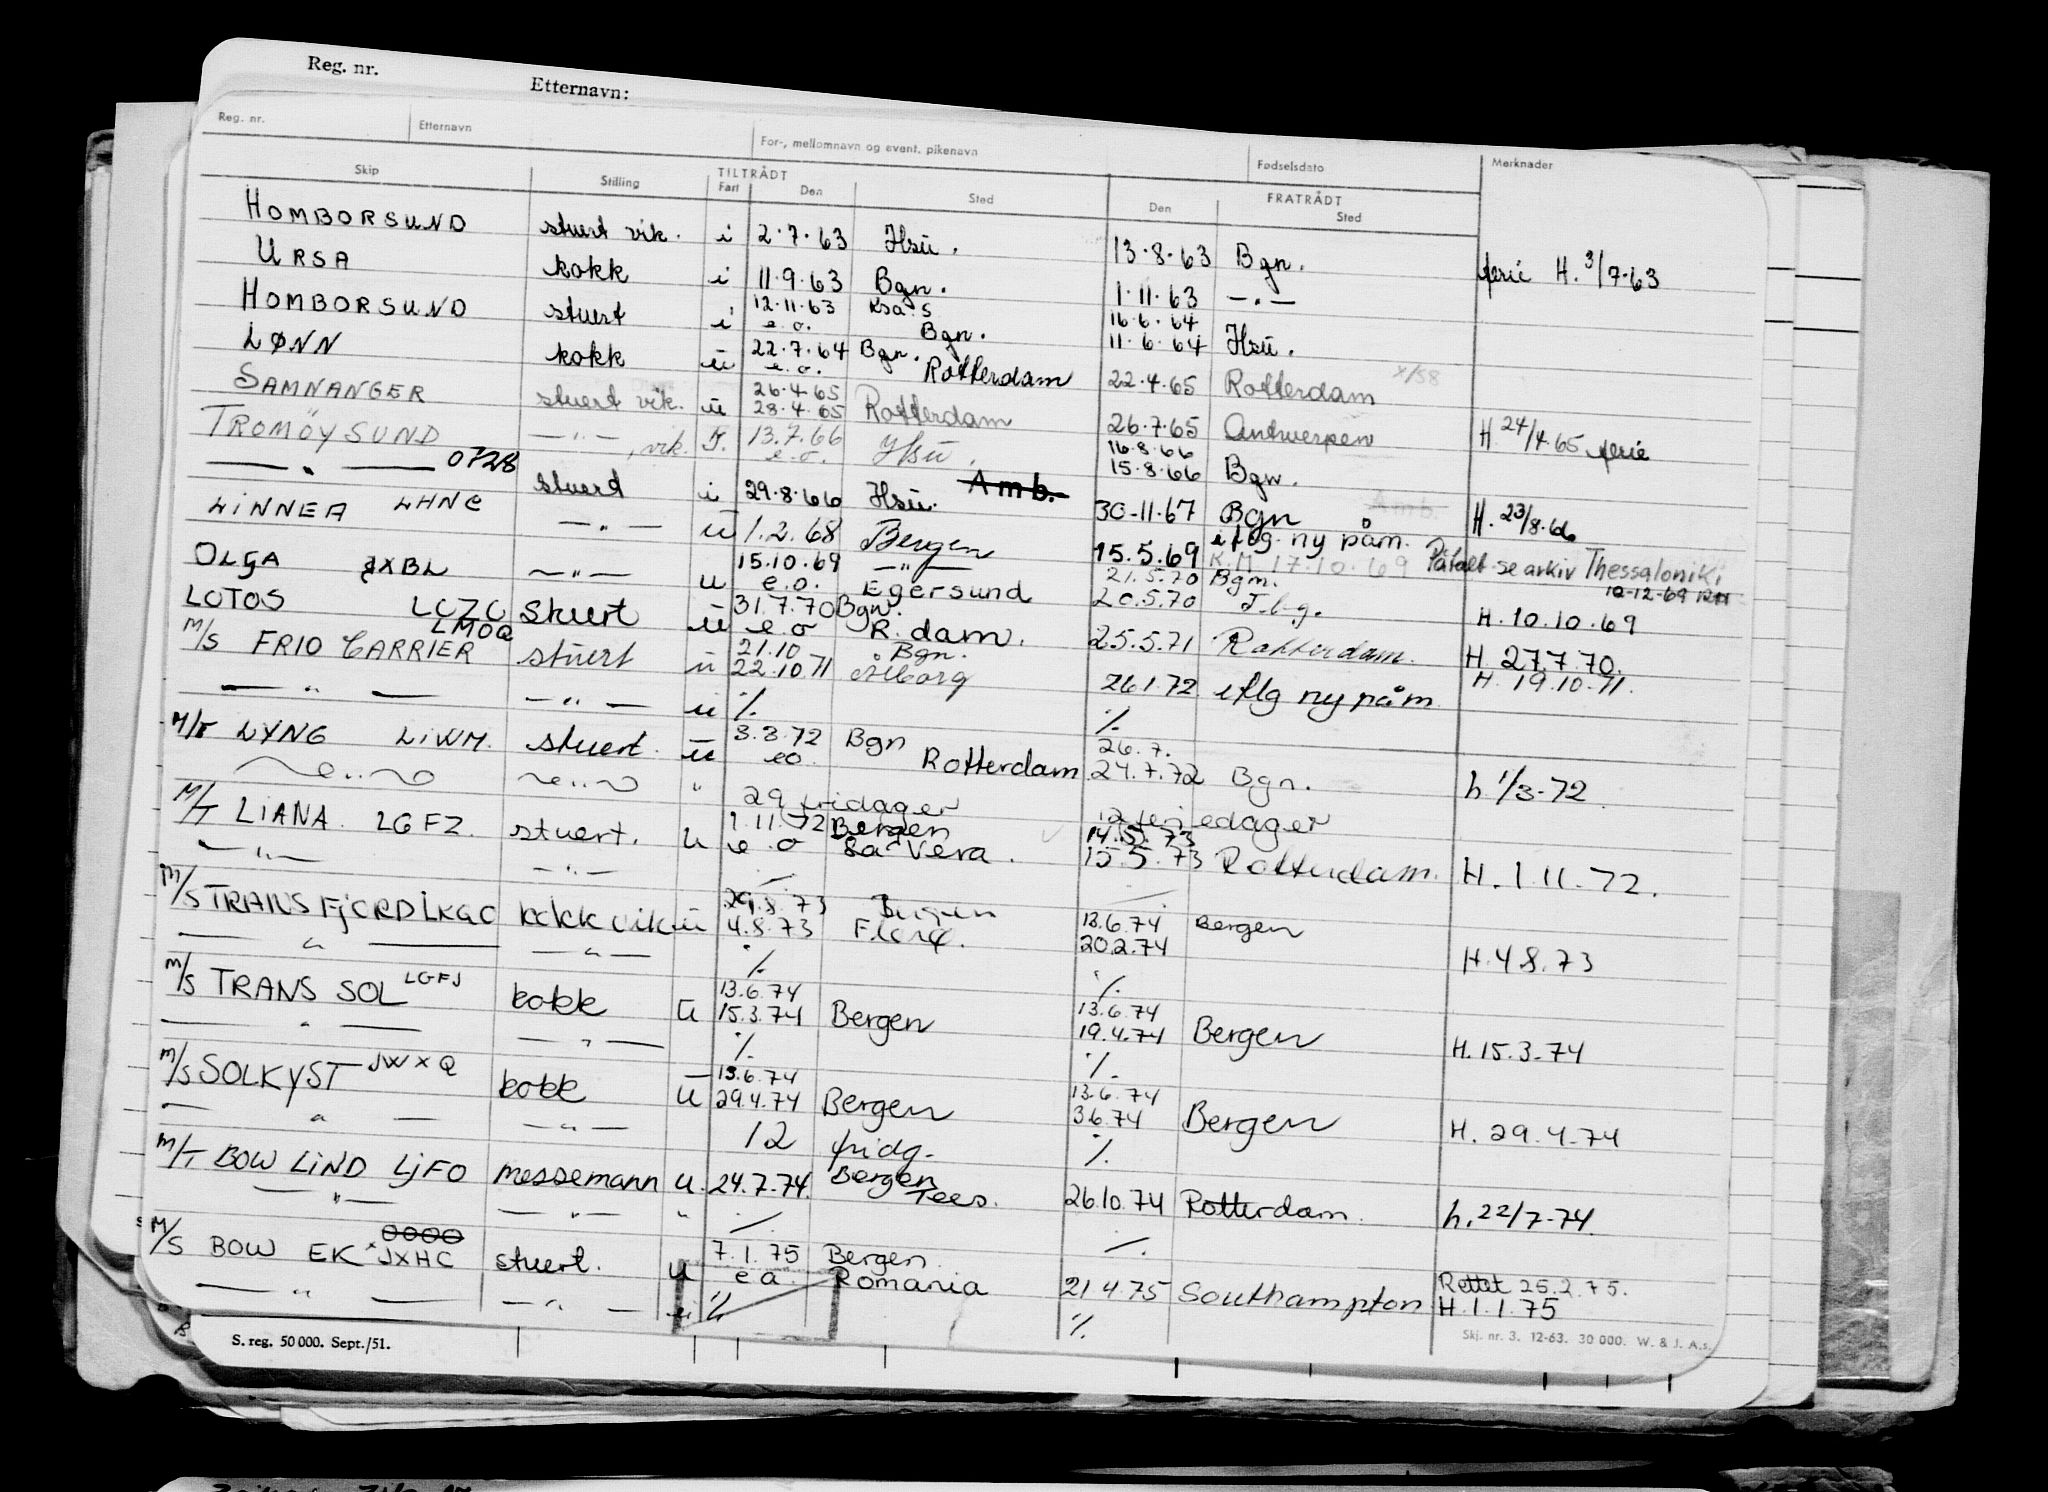 Reg. nr. Etternavn:
Reg. nr. Etternavn For-, mellomnavn og event. pikenavn Fødselsdato Merknader
Skip Stilling TILTRÅDT Fart Den Sted FRATRÅDT Den Sted
HOMBORSUND stuert vik. i 2.7.63 Hsu. 13.8.63 Bgn. ferie H. 3/7-63
URSA kokk i 11.9.63 Bgn. 1.11.63 — " —
HOMBORSUND stuert i 12.11.63 e.o. Ksa. S Bgn. 16.6.64 11.6.64 Hsu.
LØNN kokk u 22.7.64 e.o. Bgn. Rotterdam 22.4.65 Rotterdam x/58
SAMNANGER stuert vik. u 26.4.65 28.4.65 Rotterdam 26.7.65 Antwerpen H 24/4.65 ferie
TROMÖYSUND — " —, vik. 13.7.66 e.o. Hsu. 16.8.66 15.8.66 Bgn.
— " — 0728 stuerd i 29.8.66 Hsu. Amb. 30-11.67 Bgn Amb. H. 23/8.66
LINNEA LHNC — " — u 1.2.68 Bergen 15.5.69 iflg. ny påm. Påtalt se arkiv Thessaloniki
OLGA JXBL — " — u 15.10.69 e.o. — " — Egersund 21.5.70 20.5.70 K.M. 17.10.69 Bgn. T.b.g. 10-12-69 H. 10.10.69
LOTOS LCZO stuert u 31.7.70 e.o Bgn. R.dam. 25.5.71 Rotterdam. H. 27.7.70.
M/S FRIO CARRIER LMOQ stuert u 21.10 22.10.71 Bgn. Ålborg 26.1.72 iflg ny påm H. 19.10.71.
— " — — " — u ./. ./.
M/T LYNG LIWM. stuert. u 3.3.72 eo. Bgn Rotterdam 26.7. 24.7.72 Bgn. h. 1/3-72
— " — — " — " 29 fridager 12 feriedager
M/T LIANA. LGFZ. stuert. u 1.11.72 e.o Bergen Vera. 14.5.73 15.5.73 Rotterdam. H. 1.11.72.
— " — — " — ./. ./.
M/S TRANS FJORD LKGC kokk vik u 29.8.73 4.8.73 Bergen Florø. 13.6.74 20.2.74 Bergen H. 4.8.73
— " — — " — ./. ./.
M/S TRANS SOL LGFJ kokk u 13.6.74 15.3.74 Bergen 13.6.74 19.4.74 Bergen H. 15.3.74
— " — — " — ./. ./.
M/S SOLKYST JWXQ kokk u 13.6.74 29.4.74 Bergen 13.6.74 3.6.74 Bergen H. 29.4.74
— " — — " — 12 fridg. ./.
M/T BOW LIND LJFO messemann u. 24.7.74 Bergen Tees. 26.10.74 Rotterdam. h. 22/7-74.
— " — — " — " ./. ./.
M/S BOW EK OOOO JXHC stuert. u 7.1.75 e.a. Bergen. Romania 21.4.75 Southampton Rettet 25.2.75. H. 1.1.75
— " — — " — u ./. ./.
S. reg. 50 000. Sept./51. Skj. nr. 3. 12-63. 30 000. W. & J. A.s.